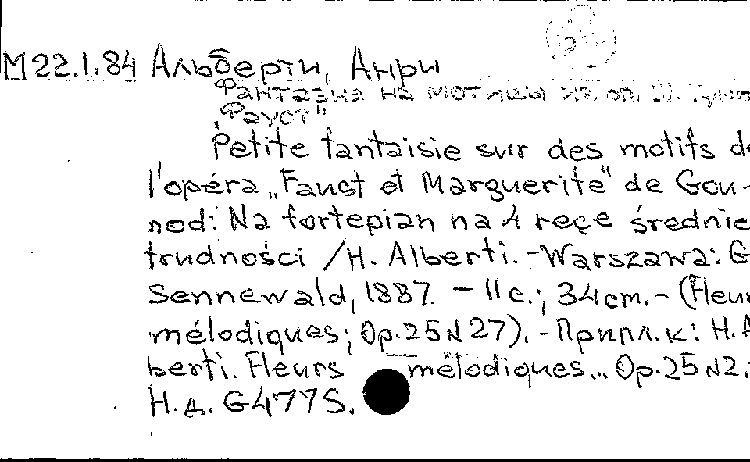 М22.1.84 Альберти, Анри
Фантазия на мотивы из оп. Ш. Гуно
Фауст"
Petite fantaisie sur des motifs de
l'opéra „Faust et Marguerite" de Gou-
nod: Na fortepian na 4 ręce średniej
trudności /H. Alberti.-Warszawa: G
Sennewald, 1887. - 11c.; 34cm.- (Fleurs
mélodiques; Op.25№27).-Припл.к: H.A
berti. Fleurs mélodiques... Op.25№2.
Н.д. G477S.